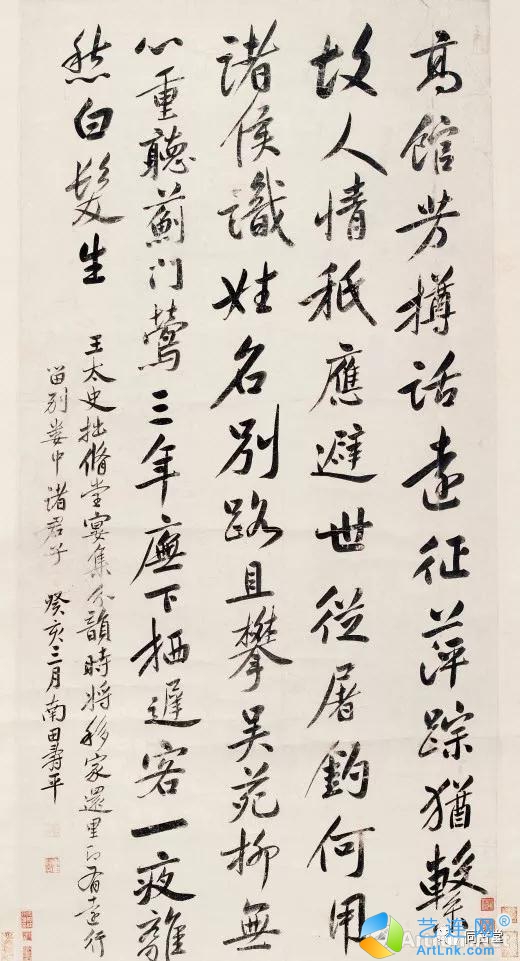 高館芳樽話遠征萍踪猶繫
故人情秪應避世從屠釣何用
諸侯識姓名別路且攀吳苑柳無
心重聽薊門鶯三年廡下栖遲客一夜離
愁白髮生
王太史拙脩堂宴集分韻時將移家還里即有遠行
留別婁中諸君子 癸亥三月南田壽平
艺连网
ArtLnk.com